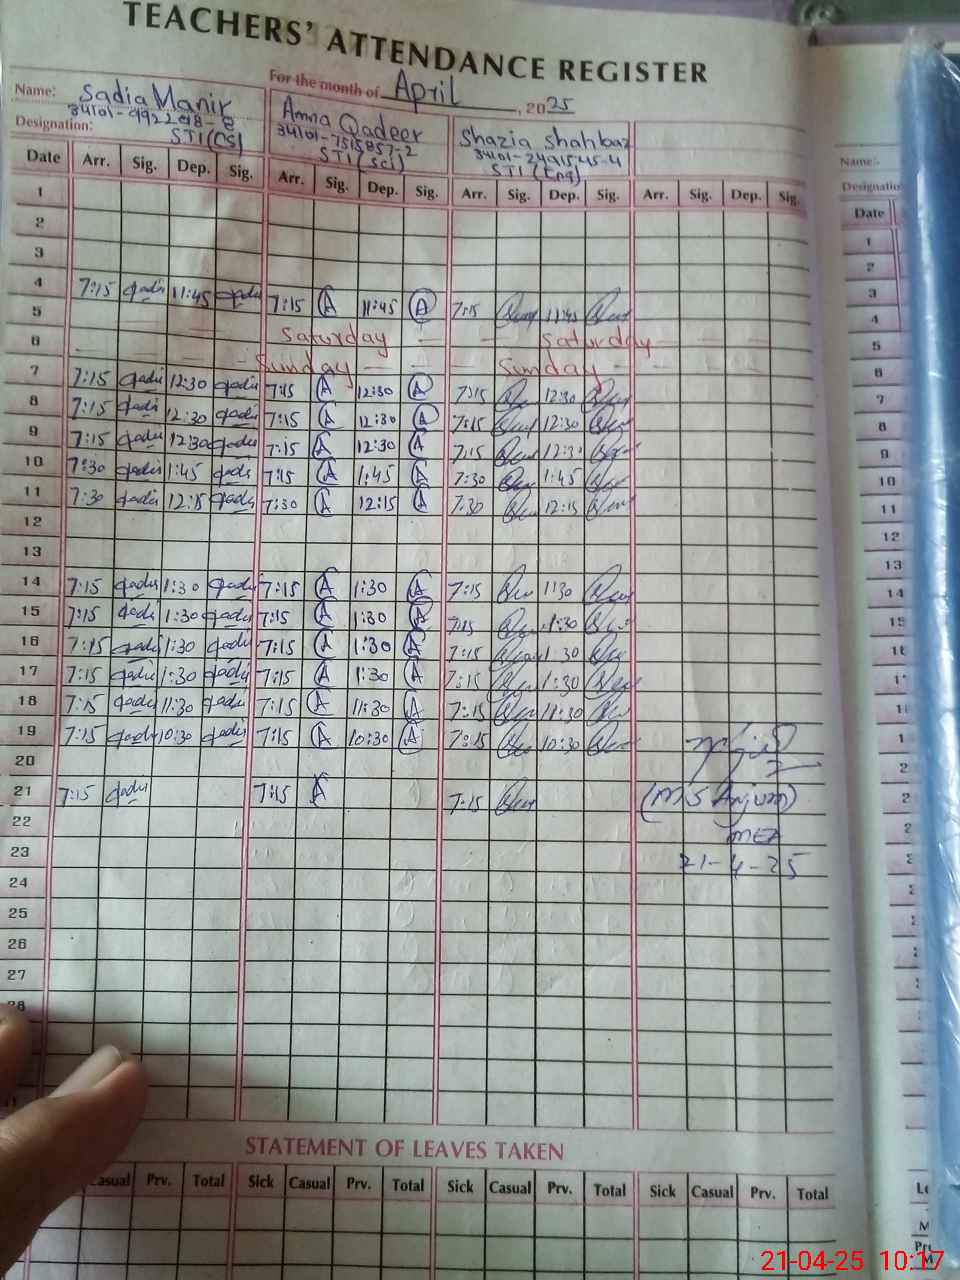 TEACHERS' ATTENDANCE REGISTER
For the month of April, 2025
Name: Sadia Manir Amna Qadeer Shazia Shahbaz
34101-7515857-2 34101-2491545-4
Designation: STI(CS) STI(Sci) STI(Eng)
Date Arr. Sig. Dep. Sig. Arr. Sig. Dep. Sig. Arr. Sig. Dep. Sig. Arr. Sig. Dep. Sig.
1
2
3
4 7:15 11:45 7:15 A 11:45 A 7:15 11:45
5 Saturday Saturday
6 Sunday Sunday
7 7:15 12:30 7:15 A 12:30 A 7:15 12:30
8 7:15 12:30 7:15 A 12:30 A 7:15 12:30
9 7:15 12:30 7:15 A 12:30 A 7:15 12:30
10 7:30 1:45 7:15 A 1:45 A 7:30 1:45
11 7:30 12:15 7:30 A 12:15 A 7:30 12:15
12
13
14 7:15 1:30 7:15 A 1:30 A 7:15 1:30
15 7:15 1:30 7:15 A 1:30 A 7:15 1:30
16 7:15 1:30 7:15 A 1:30 A 7:15 1:30
17 7:15 1:30 7:15 A 1:30 A 7:15 1:30
18 7:15 11:30 7:15 A 11:30 A 7:15 11:30
19 7:15 10:30 7:15 A 10:30 A 7:15 10:30
20
21 7:15 7:15 A 7:15 (M S Anjum)
22 MEA
23 21-4-25
24
25
26
27
28
STATEMENT OF LEAVES TAKEN
Casual Prv. Total Sick Casual Prv. Total Sick Casual Prv. Total Sick Casual Prv. Total
Name:
Designatio
Date
1
2
3
4
5
6
7
8
9
10
11
12
13
14
21-04-25 10:17